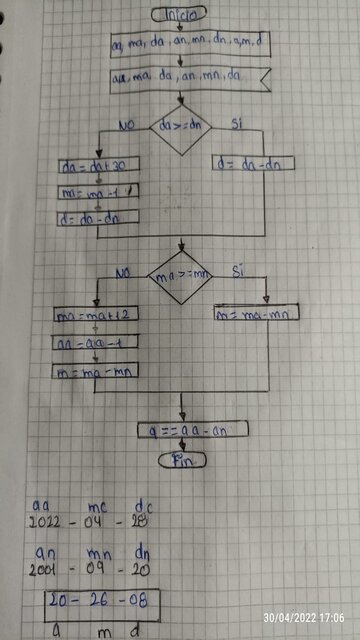 Inicio
aa, ma, da, an, mn, dn, a, m, d
aa, ma, da, an, mn, da
da>=dn
NO
Si
da = da+30
d = da-dn
ma = ma-1
d = da-dn
ma>=mn
NO
Si
ma = ma+12
m = ma-mn
aa = aa-1
m = ma-mn
a == aa-an
Fin
aa mc dc
2022 - 04 - 28
an mn dn
2001 - 09 - 20
20 - 26 - 08
a m d
30/04/2022 17:06